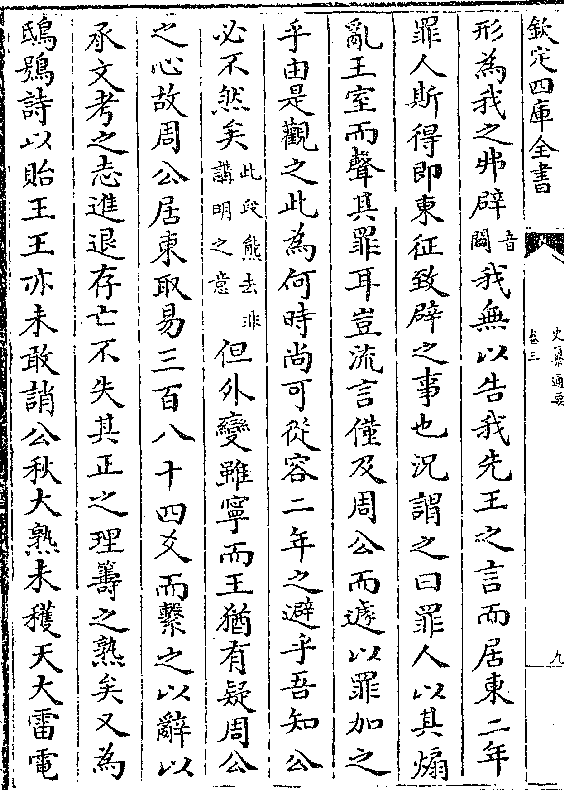 欽定四庫全書
史纂通要
卷三
九
形為我之弗辟音闢我無以告我先王之言而居東二年
罪人斯得即東征致辟之事也況謂之曰罪人以其煽
亂王室而聲其罪耳豈流言僅及周公而遽以罪加之
乎由是觀之此為何時尚可從容二年之避乎吾知公
必不然矣此段能去非講明之意但外變雖寧而王猶有疑周公
之心故周公居東取易三百八十四爻而繫之以辭以
承文考之志進退存亡不失其正之理籌之熟矣又為
鴟鴞詩以貽王王亦未敢誚公秋大熟未穫天大雷電